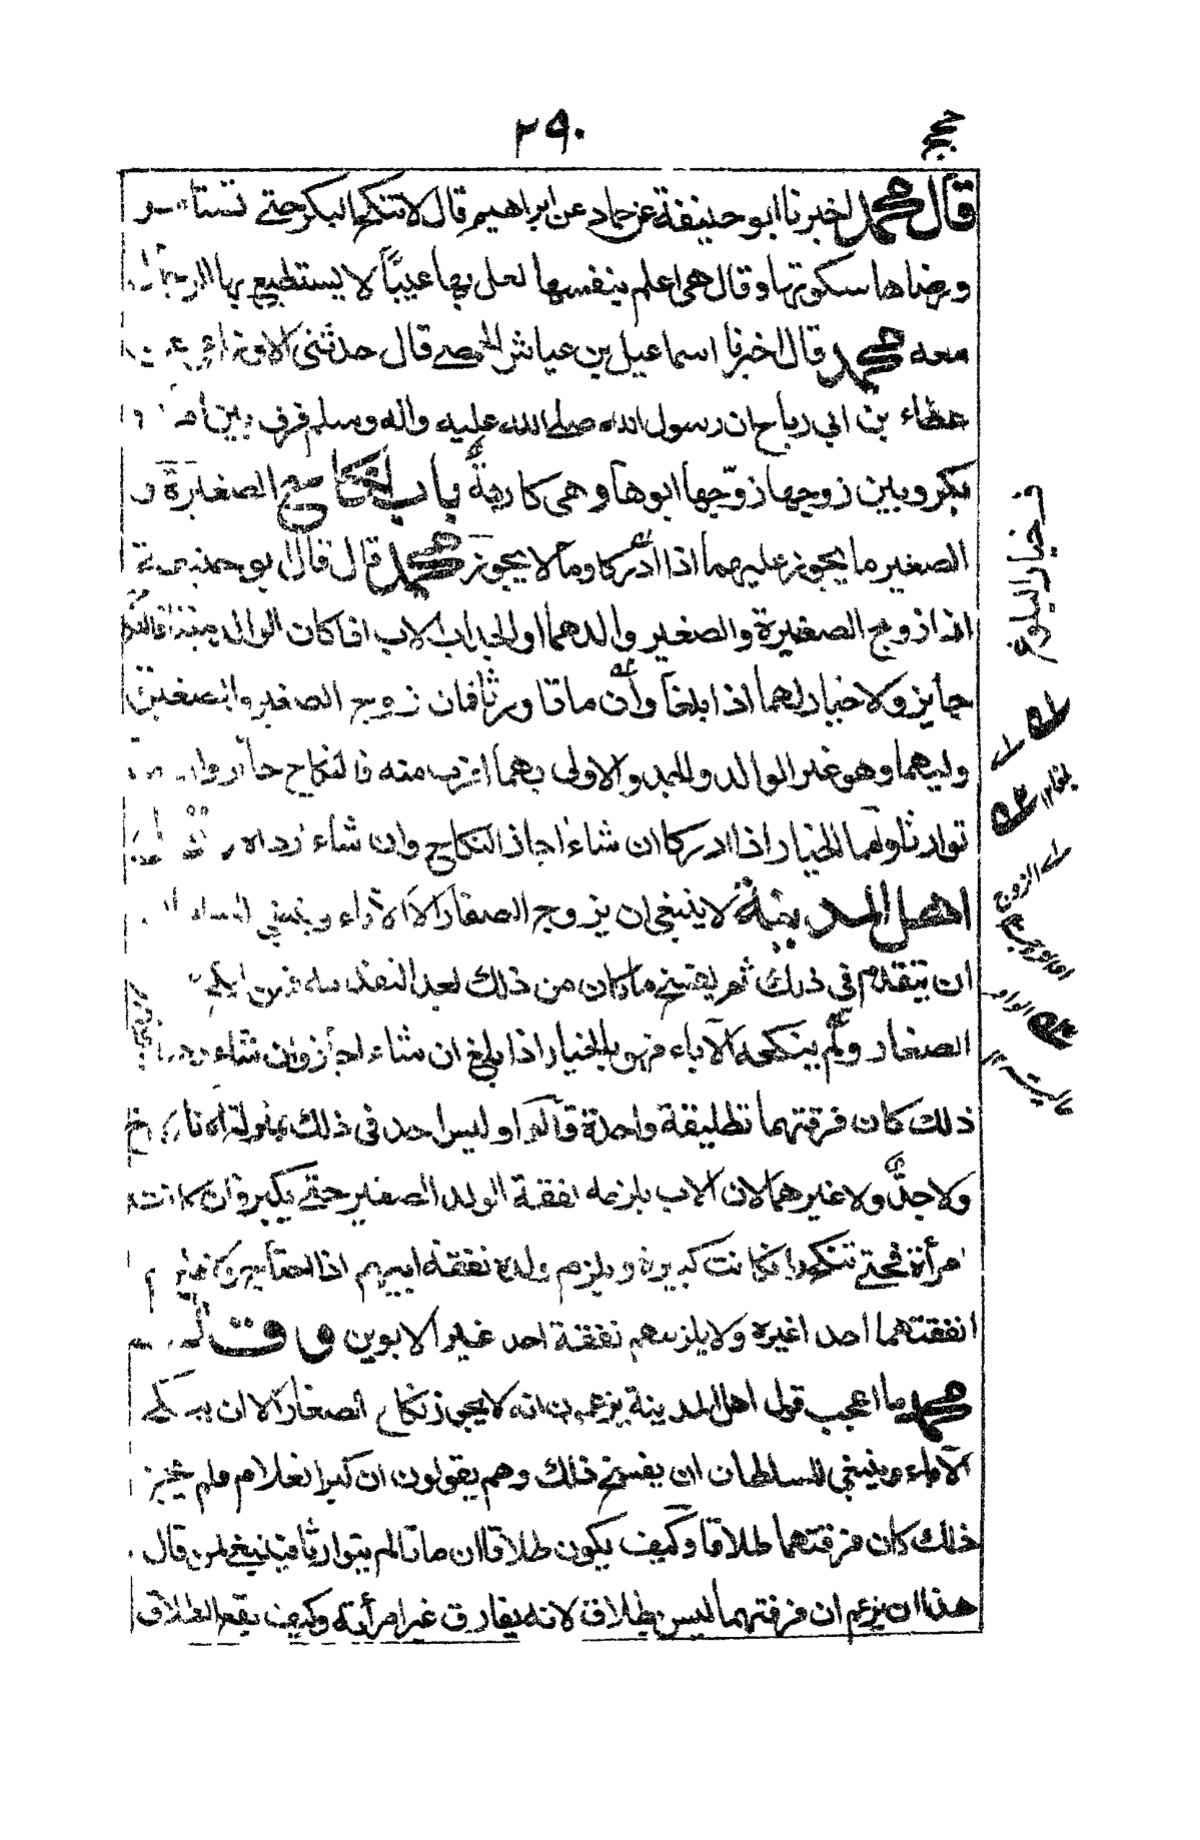 ٢٩٠
حجج
قال محمد اخبرنا ابو حنيفة عن حماد عن ابراهيم قال لا تنكح البكر حتى تستامر
ورضاها سكوتها وقال هي اعلم بنفسها لعل بها عيبا لا يستطيع بها الرجال
معه محمد قال اخبرنا اسماعيل بن عياش الحمصي قال حدثني الاوزاعي عن
عطاء بن ابي رباح ان رسول الله صلى الله عليه واله وسلم فرق بين امرأة
بكر وبين زوجها زوجها ابوها وهي كارهة باب نكاح الصغيرة و
الصغير ما يجوز عليهما اذا ادركا وما لا يجوز محمد قال قال ابو حنيفة
اذا زوج الصغيرة والصغير والدهما او الجد اب الاب اذا كان الوالد
جايز ولا خيار لهما اذا بلغا وان ماتا ورثا فان زوج الصغير والصغيرة
وليهما وهو غير الوالد والجد والاولى بهما اقرب منه فالنكاح جائز وان
توارثا ولهما الخيار اذا ادركا ان شاءا اجازا النكاح وان شاءا رداه
اهل المدينة لا ينبغي ان يزوج الصغار الا الآباء وينبغي للسلطان
ان يتقدم في ذلك ثم يفسخ ما كان من ذلك بعد التقدمة فمن انكح
الصغار ولم ينكحه الآباء فهو بالخيار اذا بلغ ان شاء اجاز وان شاء
ذلك كان فرقتهما تطليقة واحدة قالوا وليس احد في ذلك بمنزلة الاب لا اخ
ولا جد ولا غيرهما لان الاب يلزمه نفقة الولد الصغير حتى يكبر وان كانت
امرأة فحتى تنكح وان كانت كبيرة ويلزم ولده نفقة ابيهم اذا احتاج
نفقتهما احد اغيره ولا يلزمهم نفقة احد غير الابوين وقال
محمد ما اعجب قول اهل المدينة يزعمون انه لا يجوز نكاح الصغار الا ان ينكح
الآباء وينبغي للسلطان ان يفسخ ذلك وهم يقولون ان كبر الغلام فلم يجز
ذلك كان فرقتهما طلاقا وكيف يكون طلاقا ان ماتا لم يتوارثا فينبغي لمن قال
هذا ان يزعم ان فرقتهما ليس بطلاق لانه يفارق غير امرأته وكيف يقع الطلاق
ف خيار البلوغ